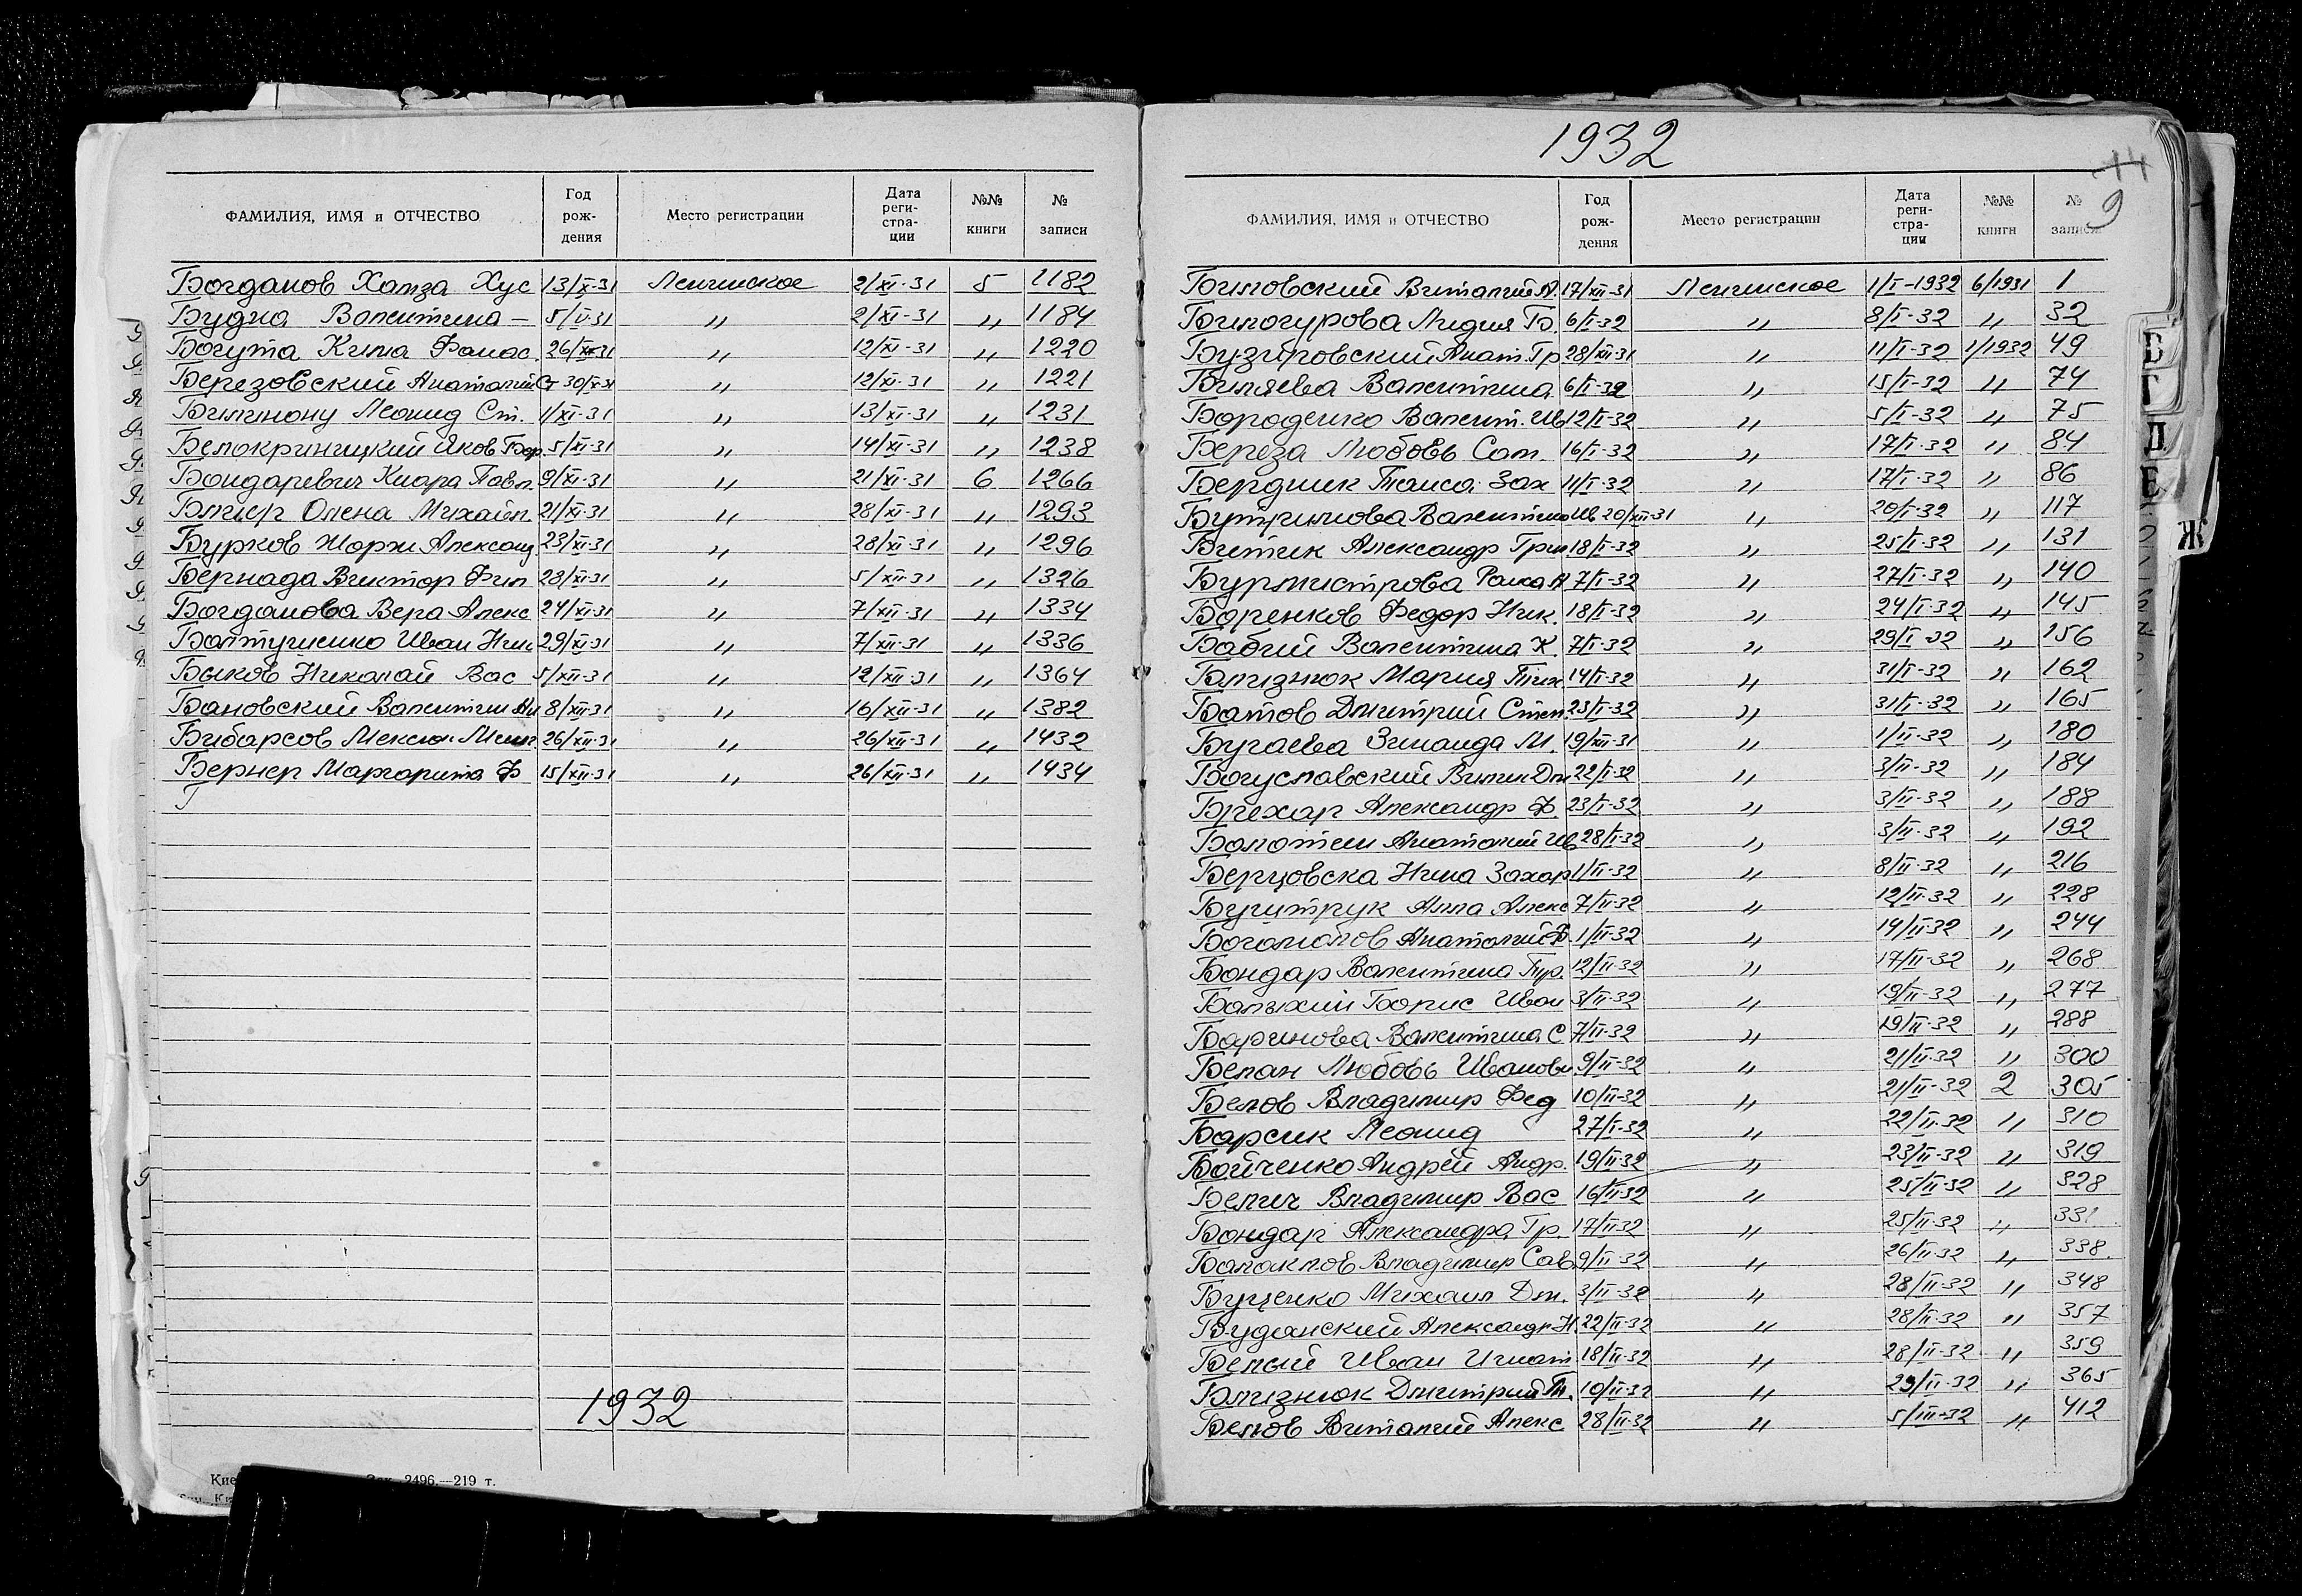 ФАМИЛИЯ, ИМЯ и ОТЧЕСТВО Год рож- дения Место регистрации Дата реги- стра- ции №№ книги № записи
Богданов Хамза Хус 13/X-31 Ленинское 2/XI-31 5 1182
Будна Валентина — 5/II-31 〃 2/XI-31 〃 1184
Богута Кима Фанас. 26/ 31 〃 12/XI-31 〃 1220
Березовский Анатолий Ст 30/X-31 〃 12/XI-31 〃 1221
Леонид Ст. 1/XI-31 〃 13/XI-31 〃 1231
Белокриницкий Яков Бор. 5/XI-31 〃 14/XI-31 〃 1238
Бондаревич Клара Павл. 9/XI-31 〃 21/XI-31 6 1266
Олена Михайл. 21/XI-31 〃 28/XI-31 〃 1293
Бурков Жорж Александ 23/XI-31 〃 28/XI-31 〃 1296
Бернада Виктор Фил 28/XI-31 〃 5/XII-31 〃 1326
Богданова Вера Алекс 24/XI-31 〃 7/XII-31 〃 1334
Иван Ник 29/XI-31 〃 7/XII-31 〃 1336
Быков Николай Вас 5/XII-31 〃 12/XII-31 〃 1364
Бановский Валентин 8/XII-31 〃 16/XII-31 〃 1382
Бибарсов 26/XII-31 〃 26/XII-31 〃 1432
Бернер Маргарита Ф 15/XII-31 〃 26/XII-31 〃 1434
1932
2496.—219 т.
1932
9
ФАМИЛИЯ, ИМЯ и ОТЧЕСТВО Год рож- дения Место регистрации Дата реги- стра- ции №№ книги № записи
Биловский Виталий А. 17/XII-31 Ленинское 1/I-1932 6/1931 1
Билогурова Лидия Б. 6/I-32 〃 8/I-32 〃 32
Анат. Гр 28/XII-31 〃 11/I-32 1/1932 49
Биляева Валентина 6/I-32 〃 15/I-32 〃 74
Бороденко Валент. Ив 12/I-32 〃 5/I-32 〃 75
Береза Любовь Сам. 16/I-32 〃 17/I-32 〃 84
Бердник Таиса Зах 11/I-32 〃 17/I-32 〃 86
Бутримова Валентина Ив 20/XII-31 〃 20/I-32 〃 117
Битик Александр Григ 18/I-32 〃 25/I-32 〃 131
Бурмистрова Раиса А 7/I-32 〃 27/I-32 〃 140
Боренков Федор Ник. 18/I-32 〃 24/I-32 〃 145
Бабий Валентина К. 7/I-32 〃 29/I-32 〃 156
Близнюк Мария Тих. 14/I-32 〃 31/I-32 〃 162
Батов Дмитрий Степ. 23/I-32 〃 31/I-32 〃 165
Бугаева Зинаида М. 19/XII-31 〃 1/II-32 〃 180
Богуславский Вилен Дм 22/I-32 〃 3/II-32 〃 184
Брехар Александр Ф. 23/I-32 〃 3/II-32 〃 188
Болотин Анатолий Ив 28/I-32 〃 3/II-32 〃 192
Берцовска Нина Захар 1/II-32 〃 8/II-32 〃 216
Алла Алекс 7/II-32 〃 12/II-32 〃 228
Боголюбов Анатолий Ф. 1/II-32 〃 14/II-32 〃 244
Бондар Валентина 12/II-32 〃 17/II-32 〃 268
Балыхин Борис Иван 3/II-32 〃 19/II-32 〃 277
Баринова Валентина С 7/II-32 〃 19/II-32 〃 288
Белан Любовь Ивановн 9/II-32 〃 21/II-32 〃 300
Белов Владимир Фед 10/II-32 〃 21/II-32 2 305
Барсик Леонид 27/I-32 〃 22/II-32 〃 310
Бойченко Андрей Андр. 19/II-32 〃 23/II-32 〃 319
Белич Владимир Вас 16/II-32 〃 25/II-32 〃 328
Бондар Александра Гр. 17/II-32 〃 25/II-32 〃 331
Балаклов Владимир Сав. 9/II-32 〃 26/II-32 〃 338
Буценко Михаил Дм. 3/II-32 〃 28/II-32 〃 348
Буданский Александр Н. 22/II-32 〃 28/II-32 〃 357
Белый Иван Игнат 18/II-32 〃 28/II-32 〃 359
Близнюк Дмитрий 10/II-32 〃 29/II-32 〃 365
Белов Виталий Алекс 28/II-32 〃 5/III-32 〃 412
Д
Е
Ж